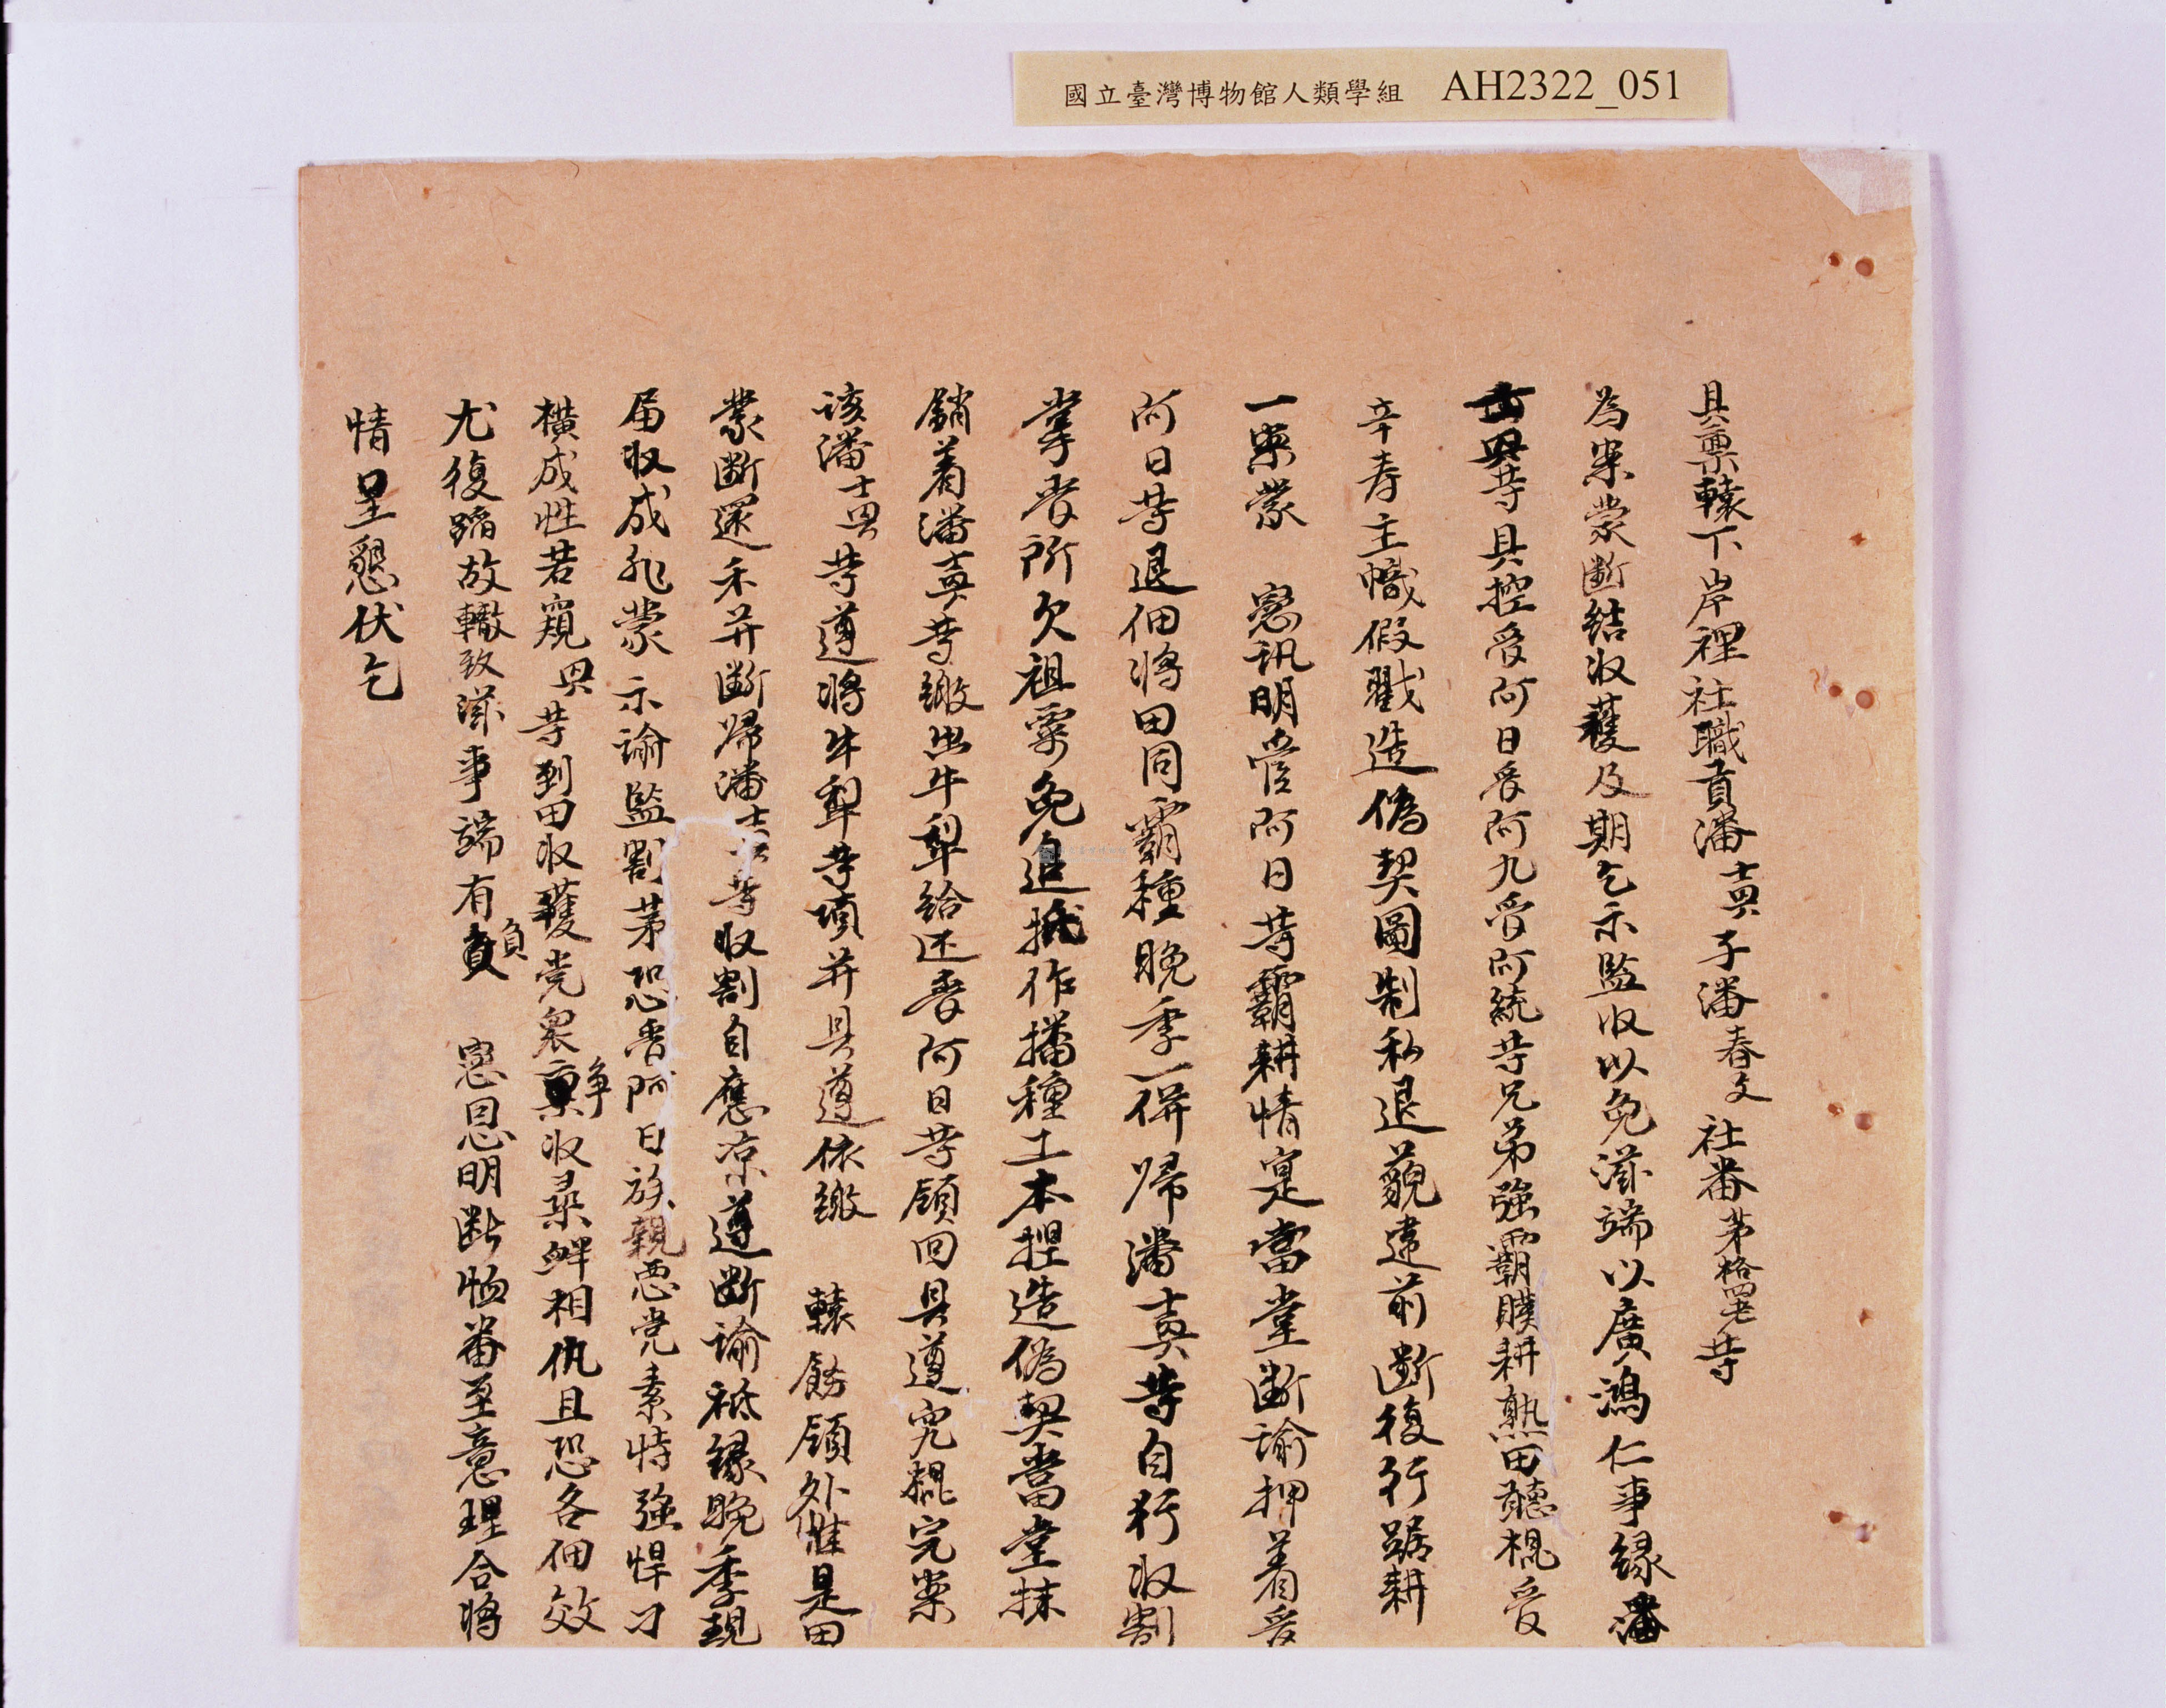 國立臺灣博物館人類學組 AH2322_051
具稟轅下岸裡社職員潘士興子潘春文社番茅格四老等
為案蒙斷結收穫及期乞示監收以免滋端以廣鴻仁事緣潘
士興等具控受阿日受阿九受阿統等兄弟強霸膜耕熟田聽棍受
辛壽主幟假戳造偽契圖制私退藐違前斷復行踞耕
一案蒙 憲訊明管阿日等霸耕情寔當堂斷諭押着受
阿日等退佃將田同霸種晚季一併歸潘士興等自行收割
掌管所欠祖粟免追抵作播種工本捏造偽契當堂抹
銷着潘士興等繳出牛犁給还麥阿日等領回具遵完棍完案
該潘士興等遵將牛犁等項并具遵依繳 轅飭領外惟是田
蒙斷還禾并斷歸潘士興等收割自應凜遵斷諭祗緣晚季現
届收成雖蒙示諭監割第恐麥阿日族親惡党素恃強悍刁
橫成性若窺興等到田收穫党衆爭收釁衅相仇且恐各佃效
尤復蹈故轍致滋事端有負 憲恩明斷恤番至意理合將
情呈懇伏乞